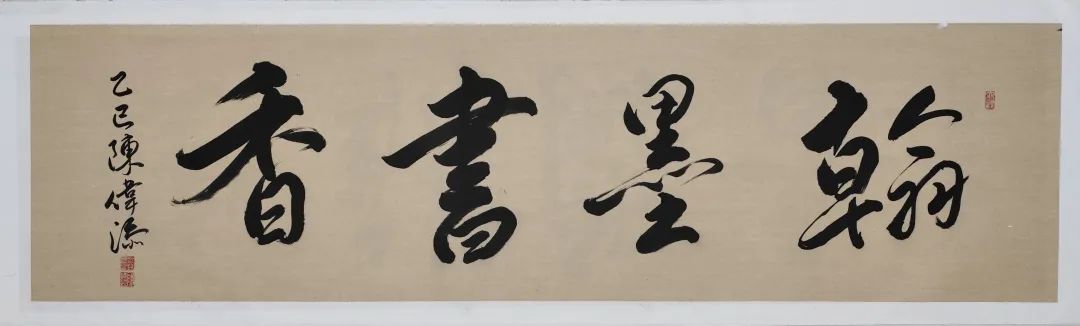 翰墨書香
乙巳陳偉添